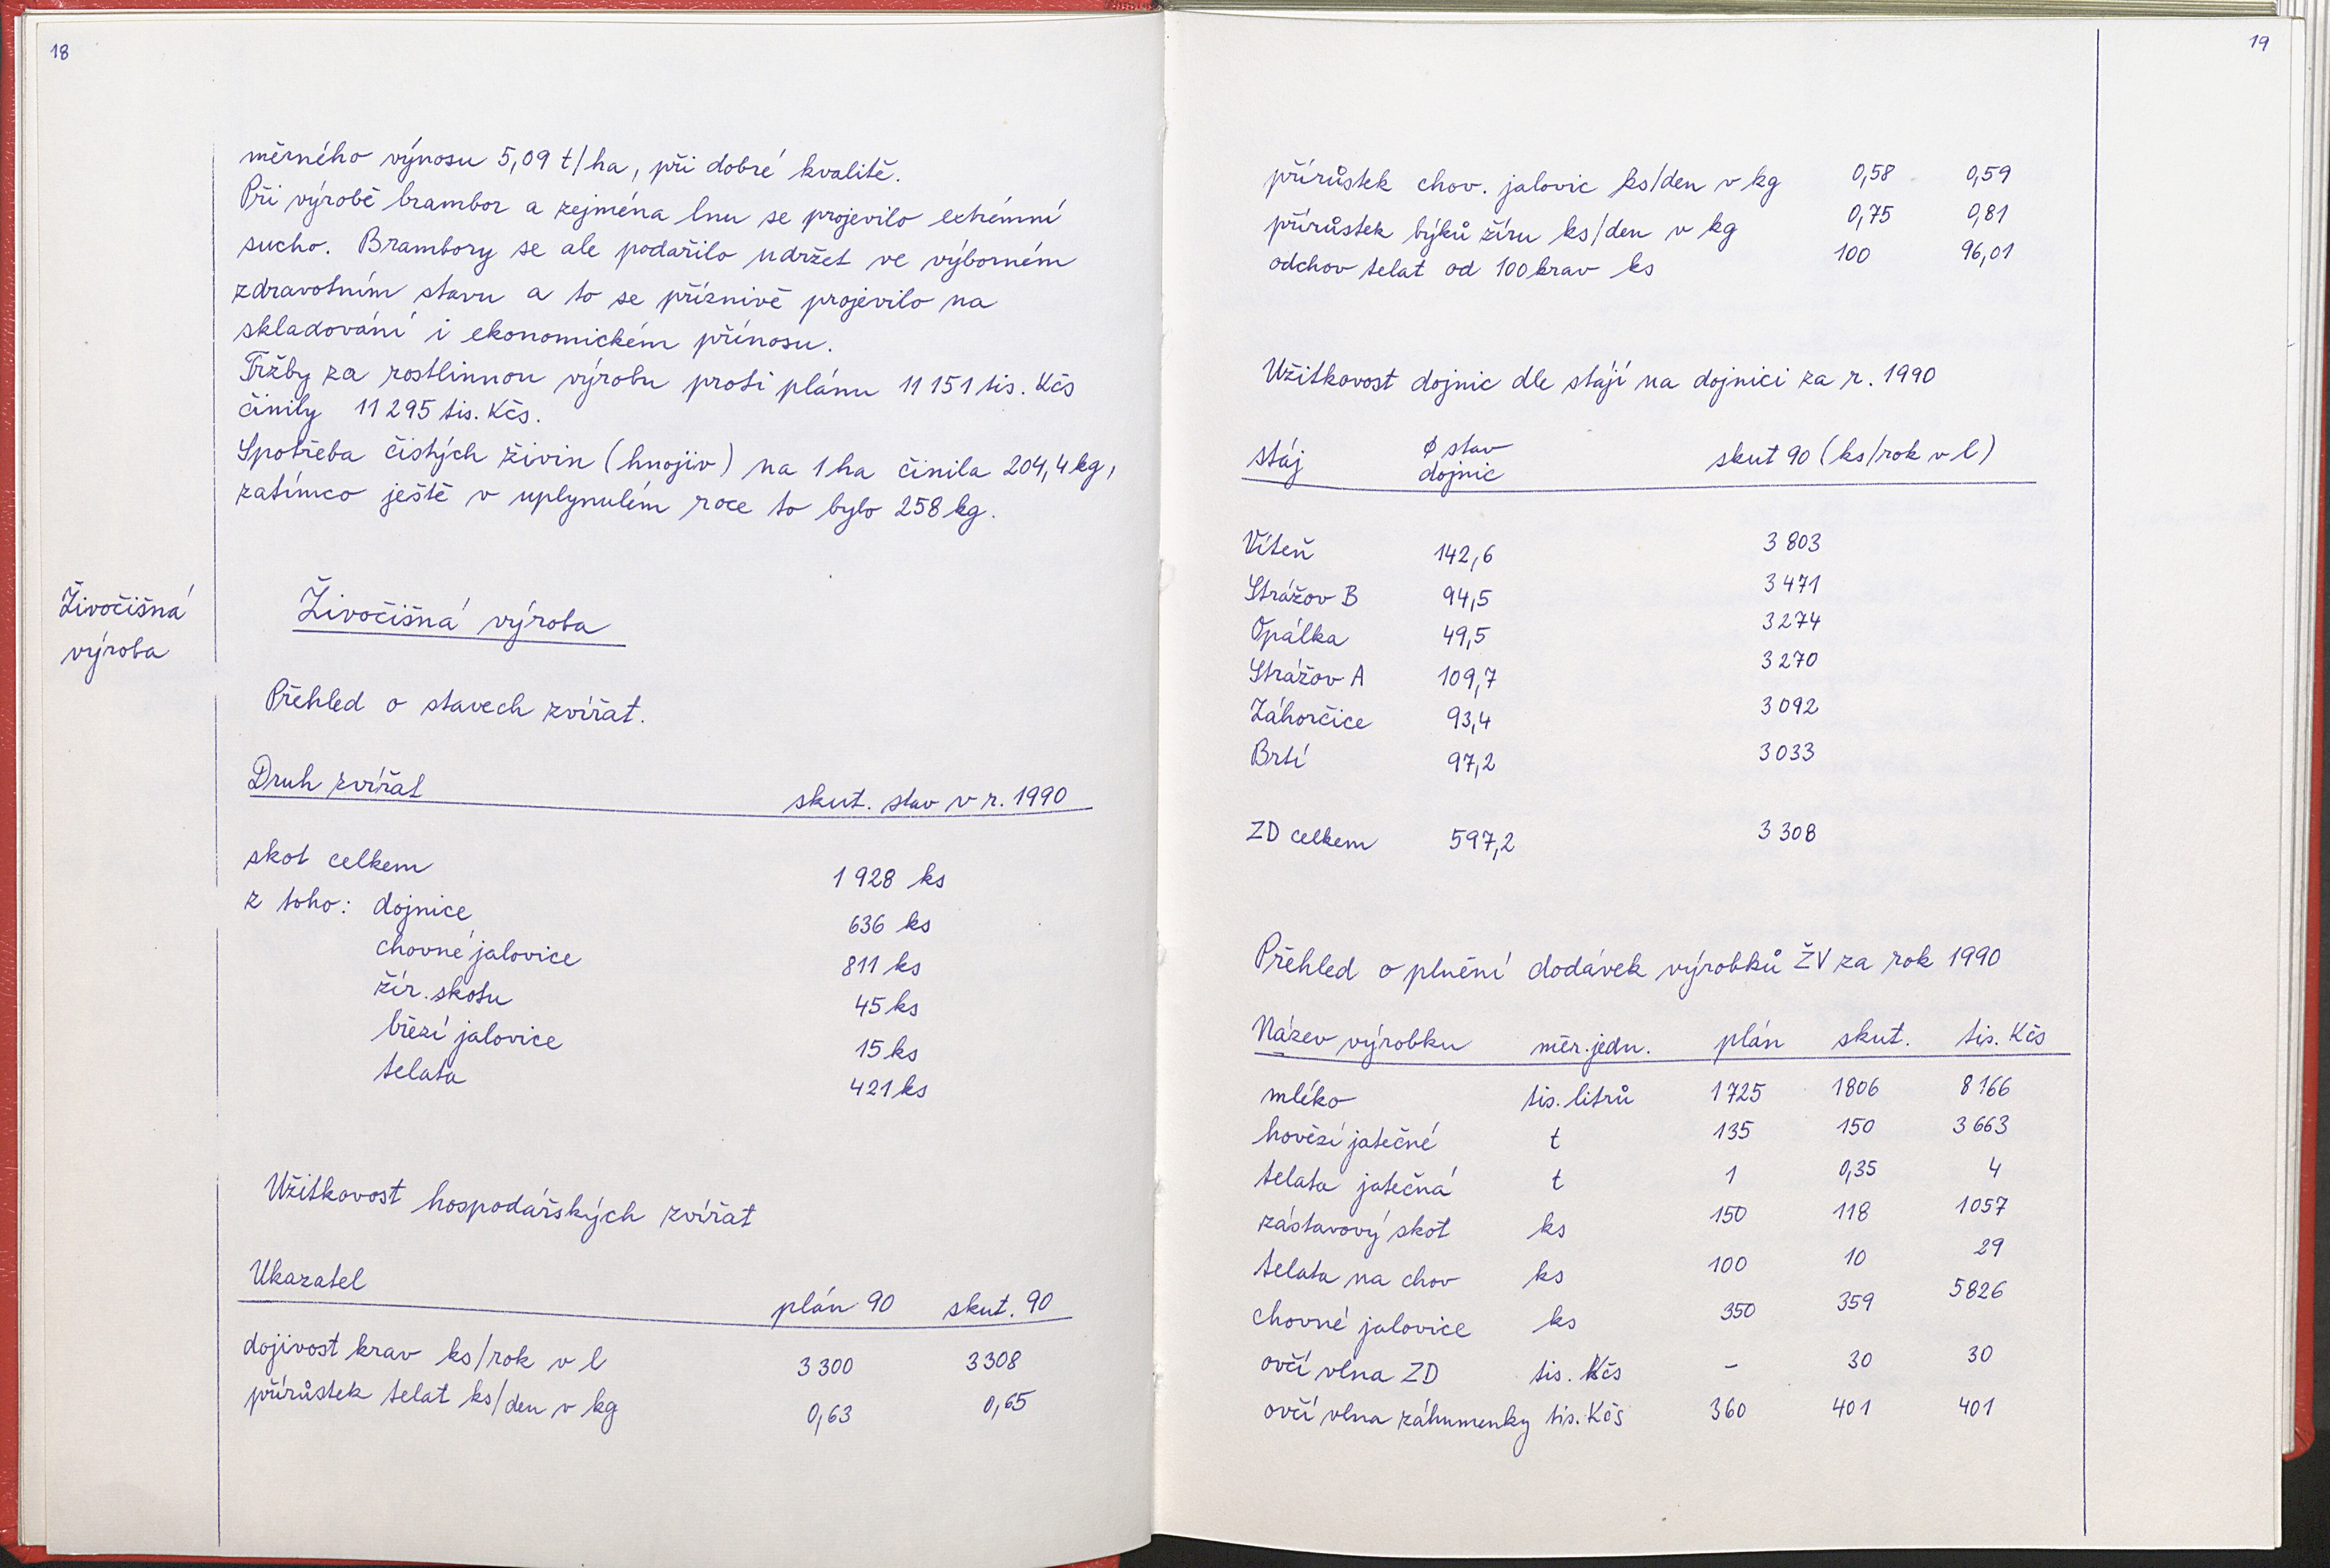 18
měrného výnosu 5,09 t/ha, při dobré kvalitě.
Při výrobě brambor a zejména lnu se projevilo extrémní
sucho. Brambory se ale podařilo udržet ve výborném
zdravotním stavu a to se příznivě projevilo na
skladování i ekonomickém přínosu.
Tržby za rostlinnou výrobu proti plánu 11 151 tis. Kčs
činily 11 295 tis. Kčs.
Spotřeba čistých živin (hnojiv) na 1 ha činila 204,4 kg,
zatímco ještě v uplynulém roce to bylo 258 kg.
Živočišná
výroba
Živočišná výroba
Přehled o stavech zvířat.
Druh zvířat skut. stav v r. 1990
skot celkem 1 928 ks
z toho: dojnice 636 ks
chovné jalovice 811 ks
žír. skotu 45 ks
březí jalovice 15 ks
telata 421 ks
Užitkovost hospodářských zvířat
Ukazatel plán 90 skut. 90
dojivost krav ks/rok v l 3 300 3308
přírůstek telat ks/den v kg 0,63 0,65
19
přírůstek chov. jalovic ks/den v kg 0,58 0,59
přírůstek býků žíru ks/den v kg 0,75 0,81
odchov telat od 100 krav ks 100 96,01
Užitkovost dojnic dle stájí na dojnici za r. 1990
stáj ø stav dojnic skut 90 (ks/rok v l)
Víteň 142,6 3 803
Strážov B 94,5 3 471
Opálka 49,5 3274
Strážov A 109,7 3 270
Záhorčice 93,4 3 092
Brtí 97,2 3 033
ZD celkem 597,2 3 308
Přehled o plnění dodávek výrobků ŽV za rok 1990
Název výrobku měr. jedn. plán skut. tis. Kčs
mléko tis. litrů 1725 1806 8 166
hovězí jatečné t 135 150 3 663
telata jatečná t 1 0,35 4
zástavový skot ks 150 118 1057
telata na chov ks 100 10 29
chovné jalovice ks 350 359 5826
ovčí vlna ZD tis. Kčs – 30 30
ovčí vlna záhumenky tis. Kčs 360 401 401